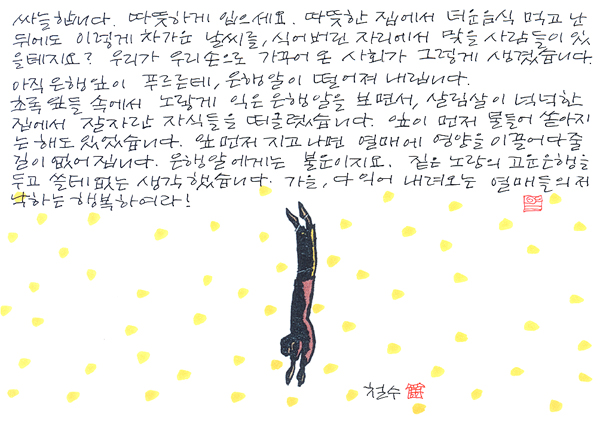 싸늘합니다. 따뜻하게 입으세요. 따뜻한 집에서 더운음식 먹고 난
뒤에도 이렇게 차가운 날씨를, 식어버린 자리에서 맞을 사람들이 있
을테지요? 우리가 우리손으로 가꾸어 온 사회가 그렇게 생겼습니다.
아직 은행잎이 푸르른데, 은행알이 떨어져 내립니다.
초록 잎들 속에서 노랗게 익은 은행알을 보면서, 살림살이 넉넉한
집에서 잘자란 자식들을 떠올렸습니다. 잎이 먼저 물들어 쏟아지
는 해도 있었습니다. 잎 먼저 지고나면 열매에 영양을 이끌어다줄
길이 없어집니다. 은행알에게는 불운이지요. 짙은 노랑의 고운은행을
두고 쓸데없는 생각 했습니다. 가을, 다 익어 내려오는 열매들의 저
낙하는 행복하여라!
철수